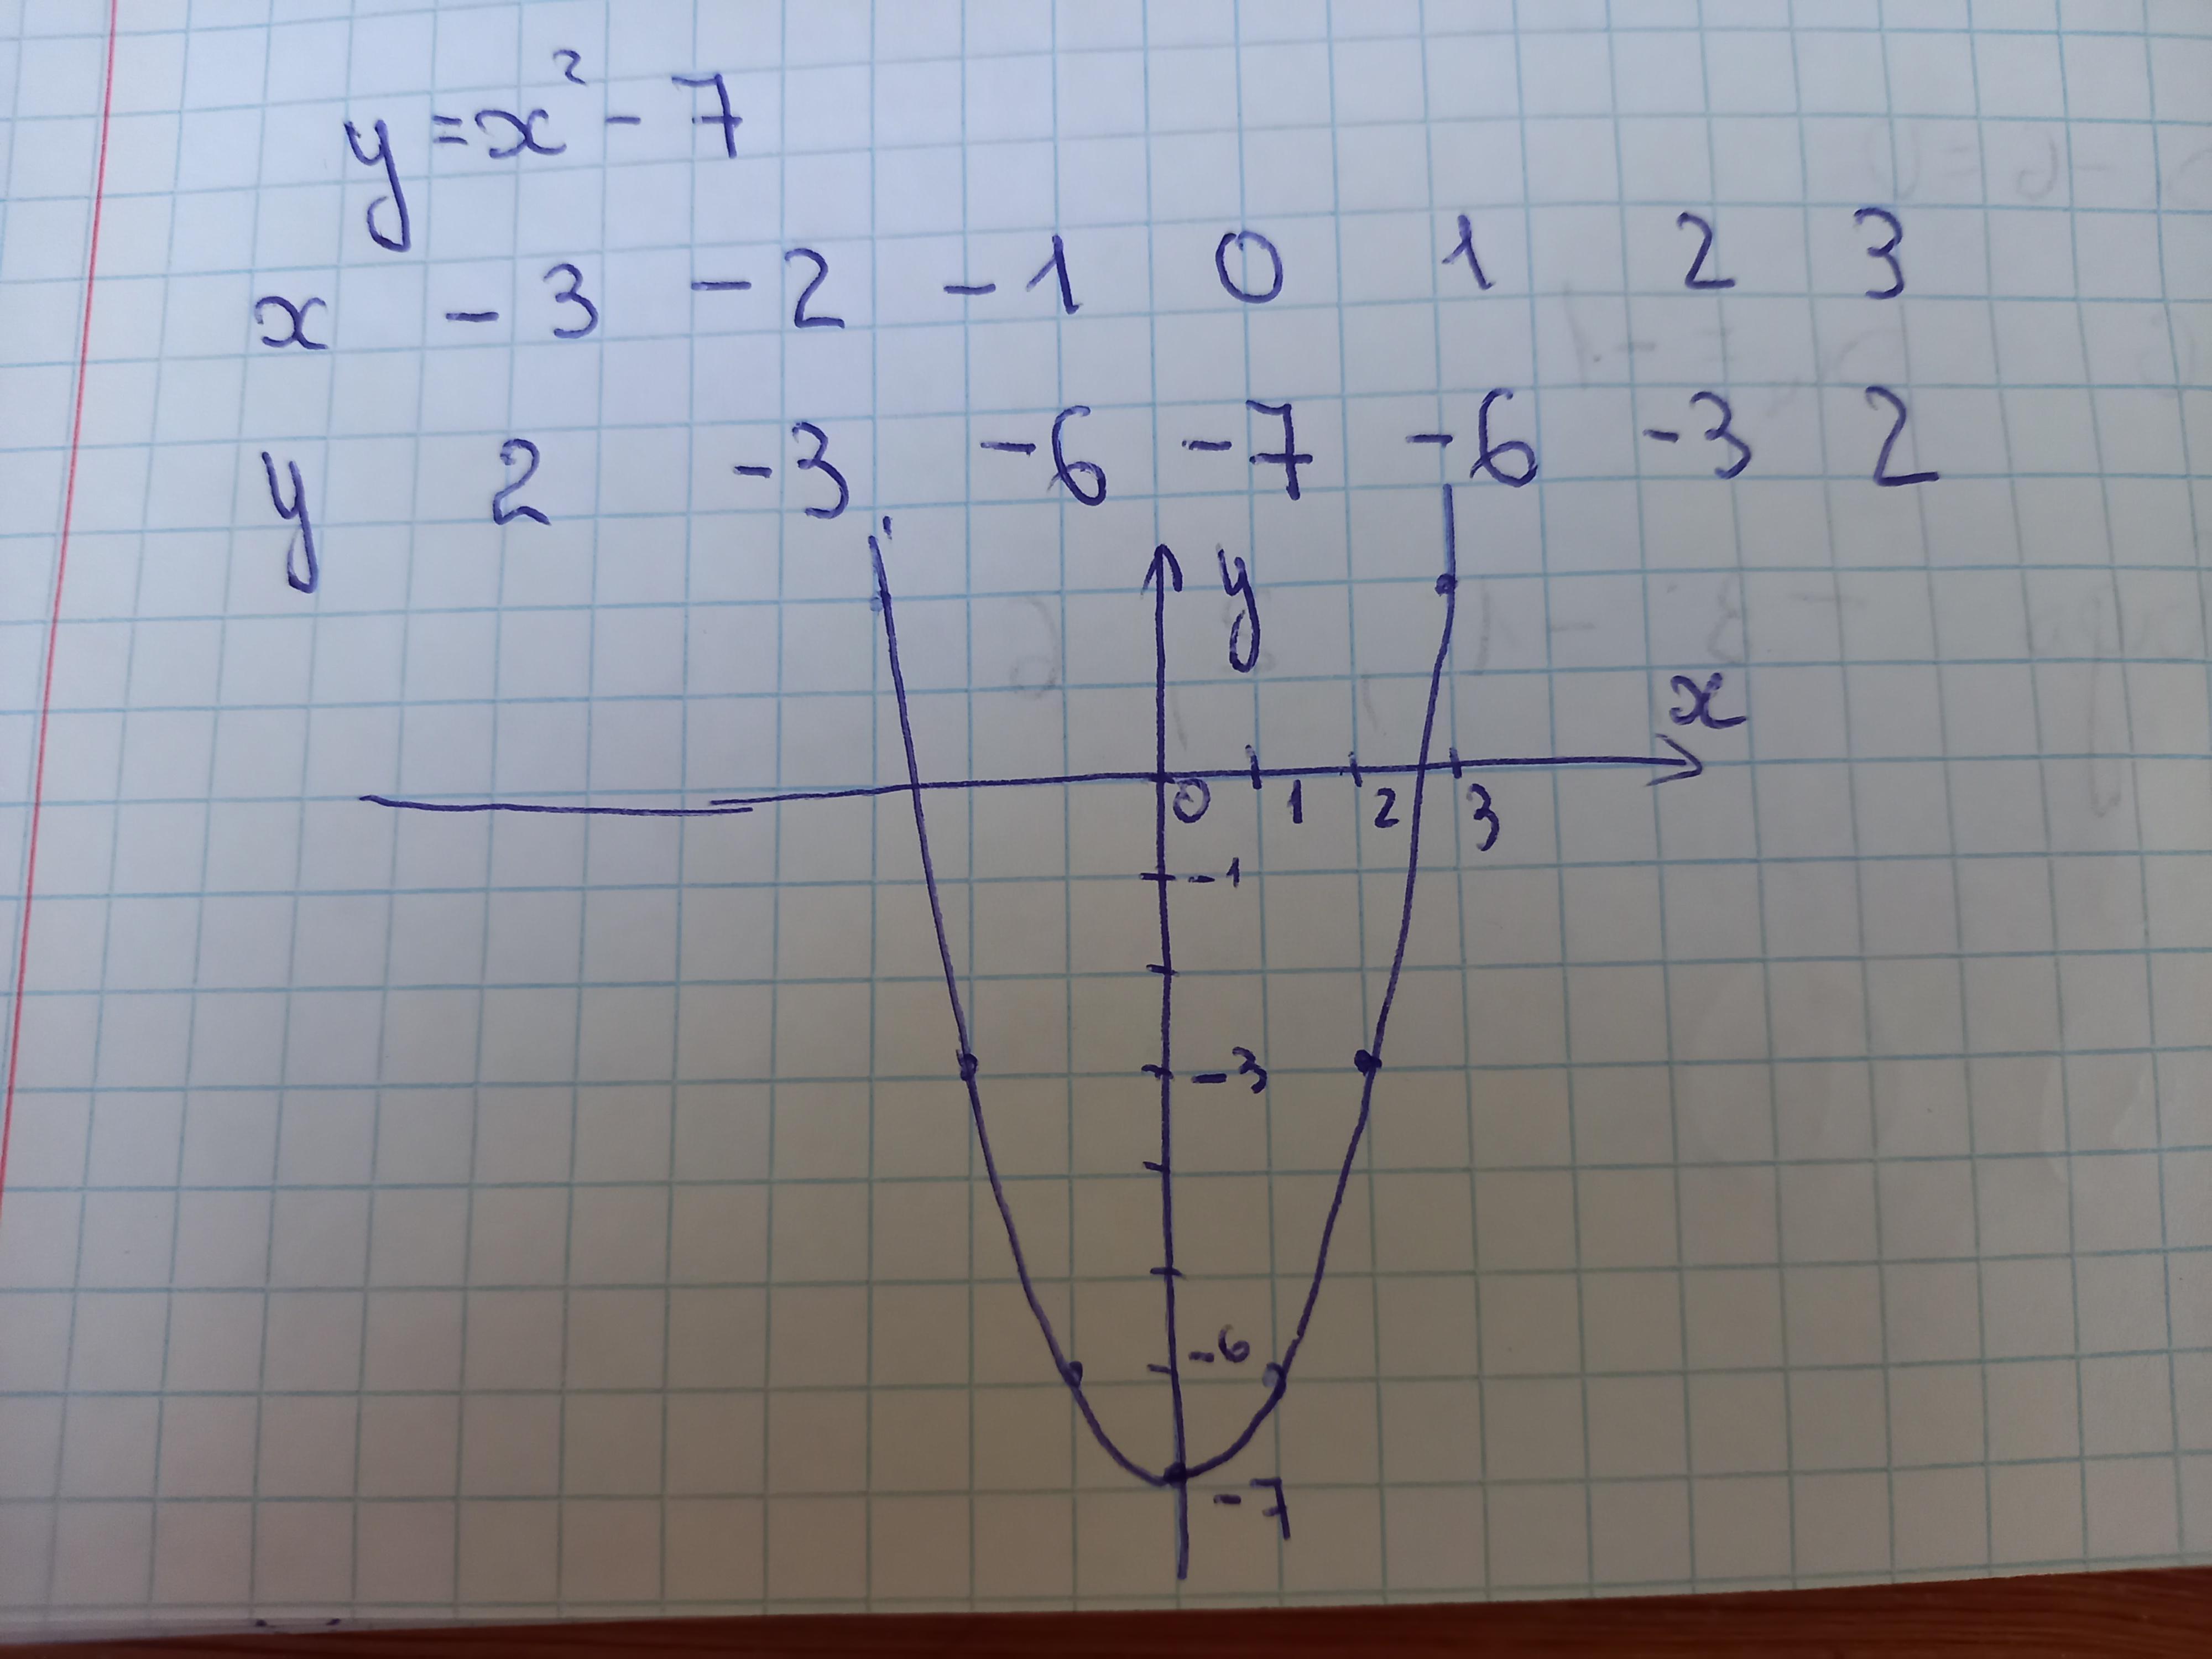 y = x² - 7
x - 3 - 2 - 1 0 1 2 3
y 2 -3 -6 -7 -6 -3 2
y
x
0 1 2 3
-1
-3
-6
-7